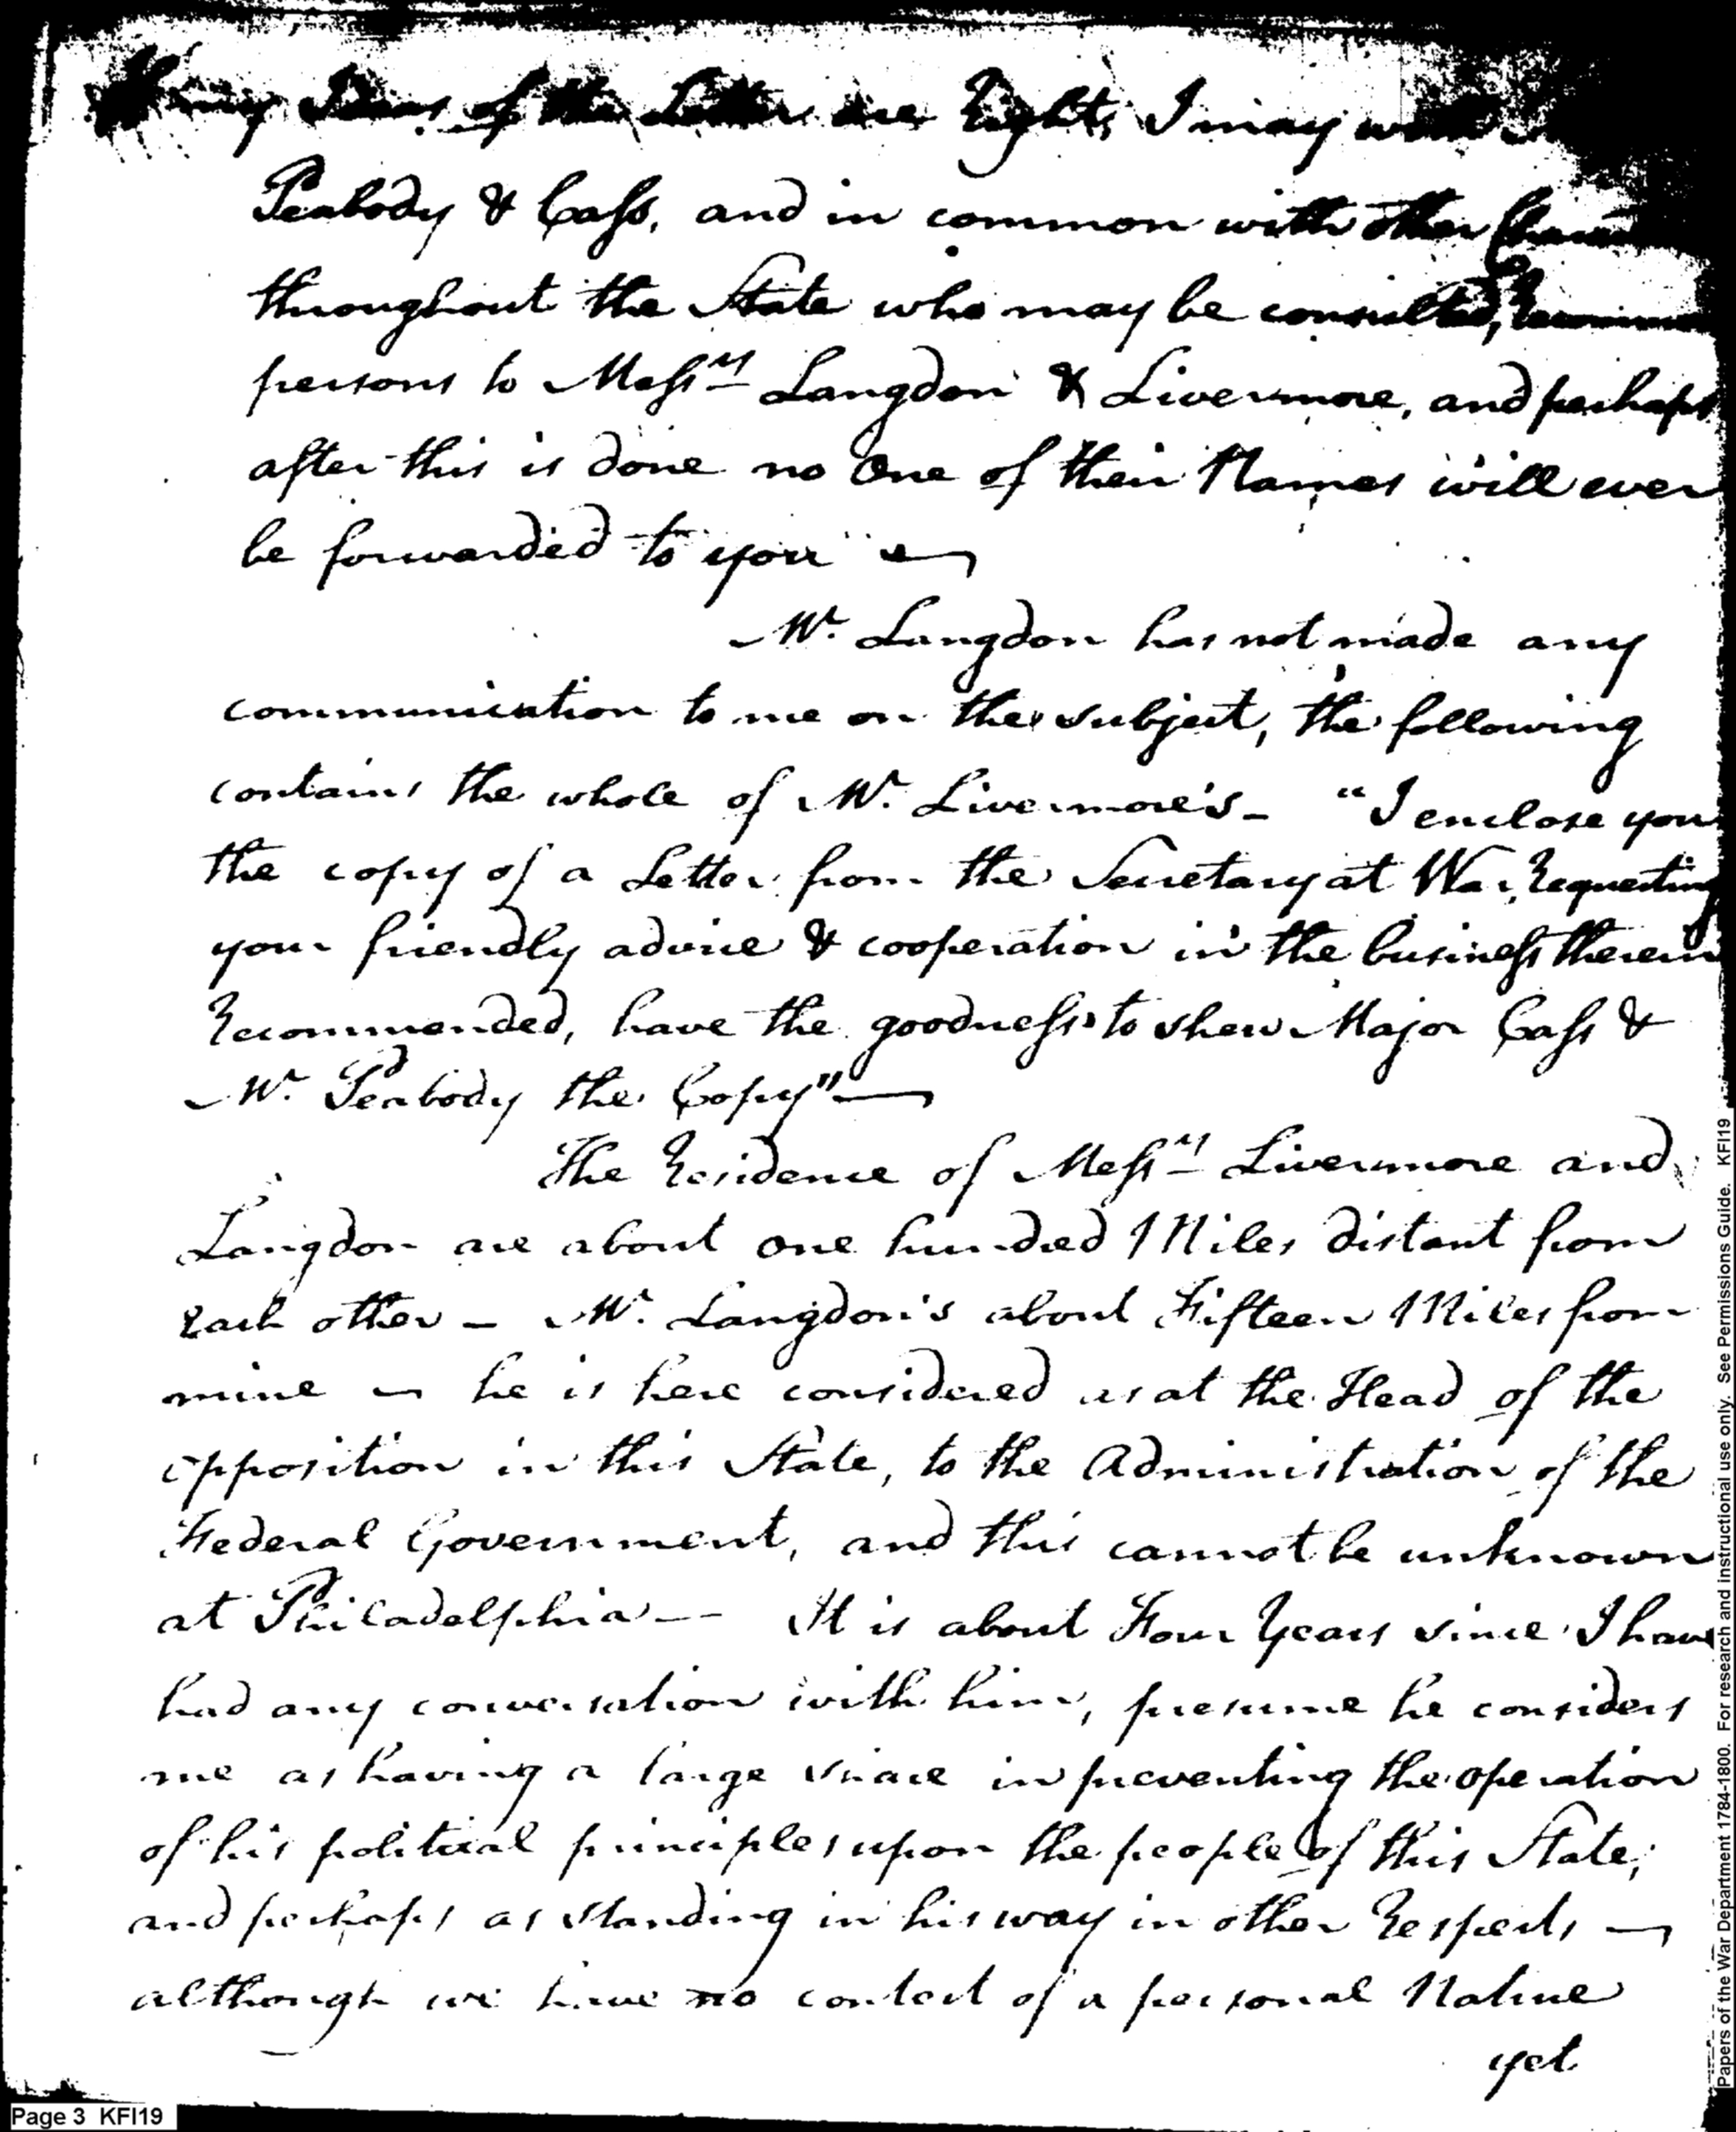 my Ideas of the Letter are Right, I may with
Peabody & Cass, and in common with other
throughout the State who may be consulted,
persons to Mess.rs Langdon & Livermore, and perhaps
after this is done no One of their Names will ever
be forwarded to you —
Mr. Langdon has not made any
communication to me on the subject, the following
contains the whole of Mr. Livermore's — "I enclose you
the copy of a Letter from the Secretary at War, Requesting
your friendly advice & cooperation in the business therein
Recommended, have the goodness to shew Major Cass &
Mr. Peabody the Copy" —
The Residence of Mess.rs Livermore and
Langdon are about one hundred Miles distant from
Each other — Mr. Langdon's about Fifteen Miles from
mine — he is here considered as at the Head of the
opposition in this State, to the Administration of the
Federal Government, and this cannot be unknown
at Philadelphia — It is about Four Years since I have
had any conversation with him, presume he considers
me as having a large share in preventing the operation
of his political principles upon the people of this State;
and perhaps as standing in his way in other Respects —
although we have no contest of a personal Nature
yet
Page 3 KFI19
Papers of the War Department 1784-1800. For research and instructional use only. See Permissions Guide. KFI19